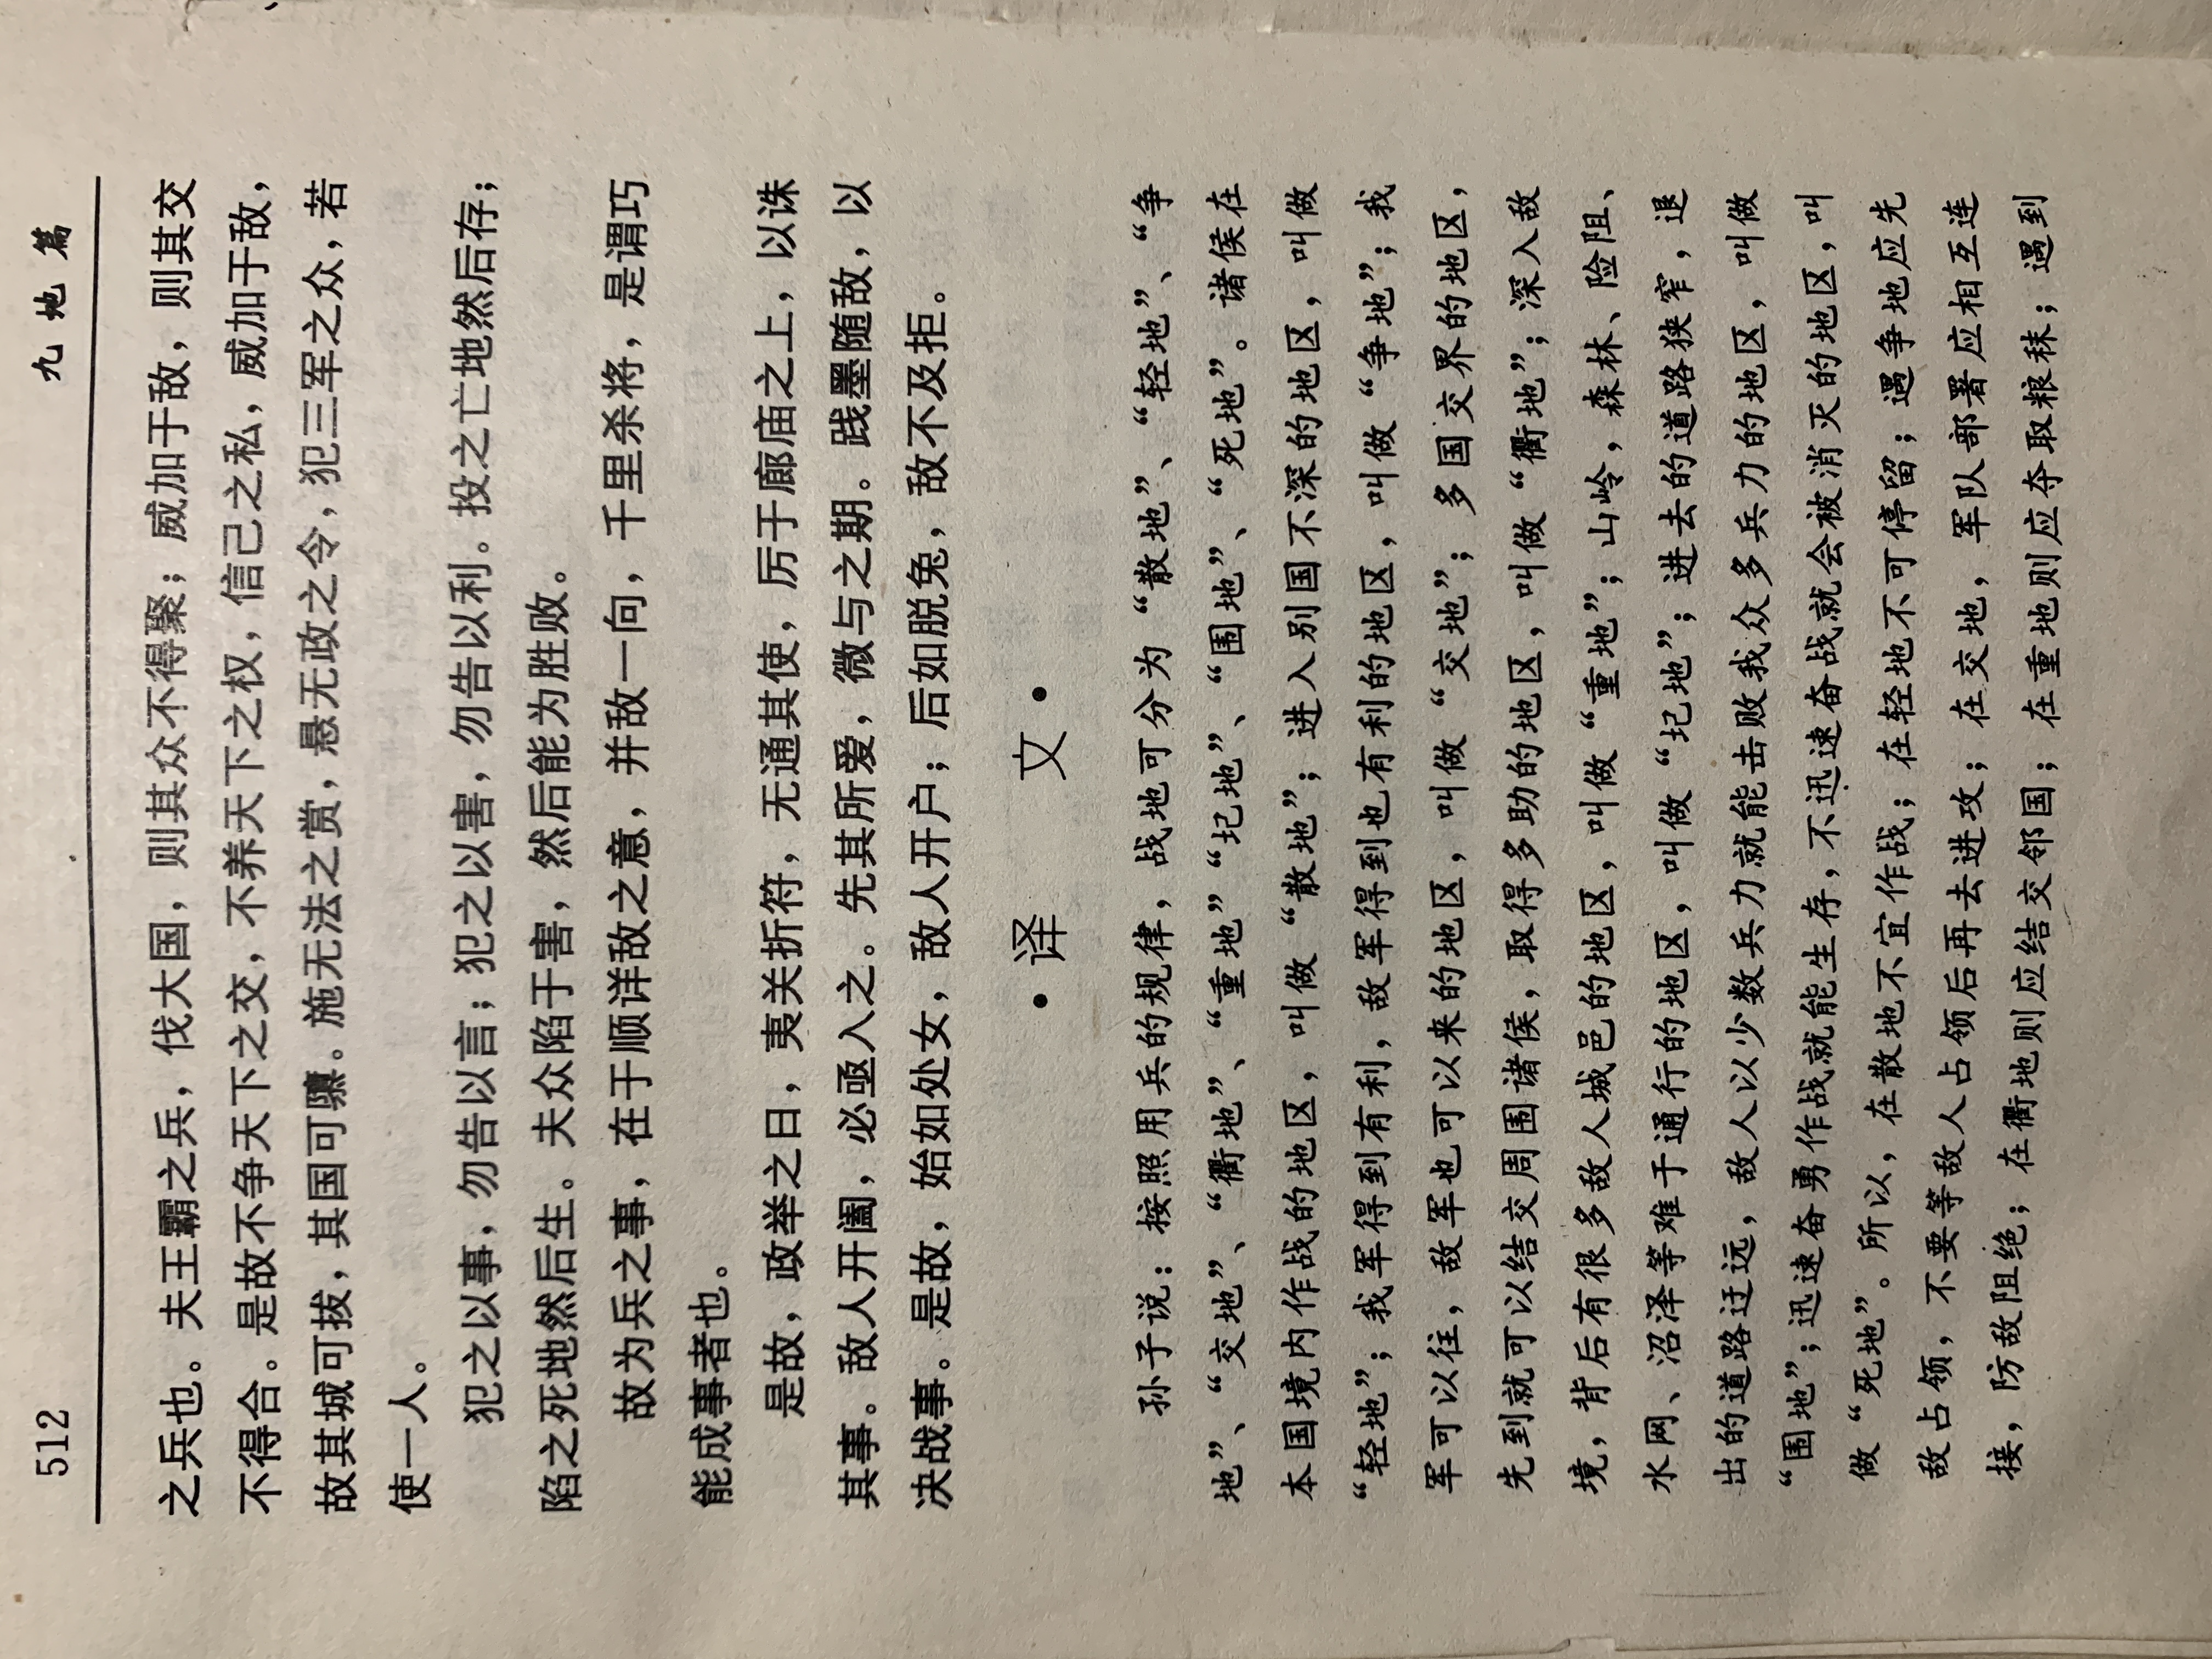 512
九地篇
之兵也。夫王霸之兵，伐大国，则其众不得聚；威加于敌，则其交
不得合。是故不争天下之交，不养天下之权，信己之私，威加于敌，
故其城可拔，其国可隳。施无法之赏，悬无政之令，犯三军之众，若
使一人。
犯之以事，勿告以言；犯之以害，勿告以利。投之亡地然后存；
陷之死地然后生。夫众陷于害，然后能为胜败。
故为兵之事，在于顺详敌之意，并敌一向，千里杀将，是谓巧
能成事者也。
是故，政举之日，夷关折符，无通其使，厉于廊庙之上，以诛
其事。敌人开阖，必亟入之。先其所爱，微与之期。践墨随敌，以
决战事。是故，始如处女，敌人开户；后如脱兔，敌不及拒。
·译 文·
孙子说：按照用兵的规律，战地可分为“散地”、“轻地”、“争
地”、“交地”、“衢地”、“重地”“圮地”、“围地”、“死地”。诸侯在
本国境内作战的地区，叫做“散地”；进入别国不深的地区，叫做
“轻地”；我军得到有利，敌军得到也有利的地区，叫做“争地”；我
军可以往，敌军也可以来的地区，叫做“交地”；多国交界的地区，
先到就可以结交周围诸侯，取得多助的地区，叫做“衢地”；深入敌
境，背后有很多敌人城邑的地区，叫做“重地”；山岭，森林、险阻、
水网、沼泽等难于通行的地区，叫做“圮地”；进去的道路狭窄，退
出的道路迂远，敌人以少数兵力就能击败我众多兵力的地区，叫做
“围地”；迅速奋勇作战就能生存，不迅速奋战就会被消灭的地区，叫
做“死地”。所以，在散地不宜作战；在轻地不可停留；遇争地应先
敌占领，不要等敌人占领后再去进攻；在交地，军队部署应相互连
接，防敌阻绝；在衢地则应结交邻国；在重地则应夺取粮秣；遇到